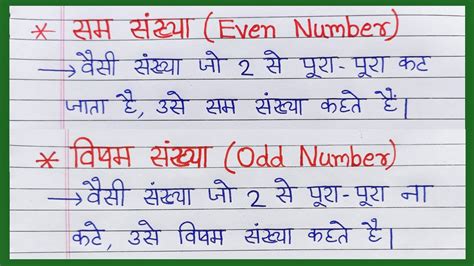 * सम संख्या (Even Number)
→ वैसी संख्या जो 2 से पूरा-पूरा कट
जाता है, उसे सम संख्या कहते हैं।
* विषम संख्या (Odd Number)
→ वैसी संख्या जो 2 से पूरा-पूरा ना
कटे, उसे विषम संख्या कहते है।